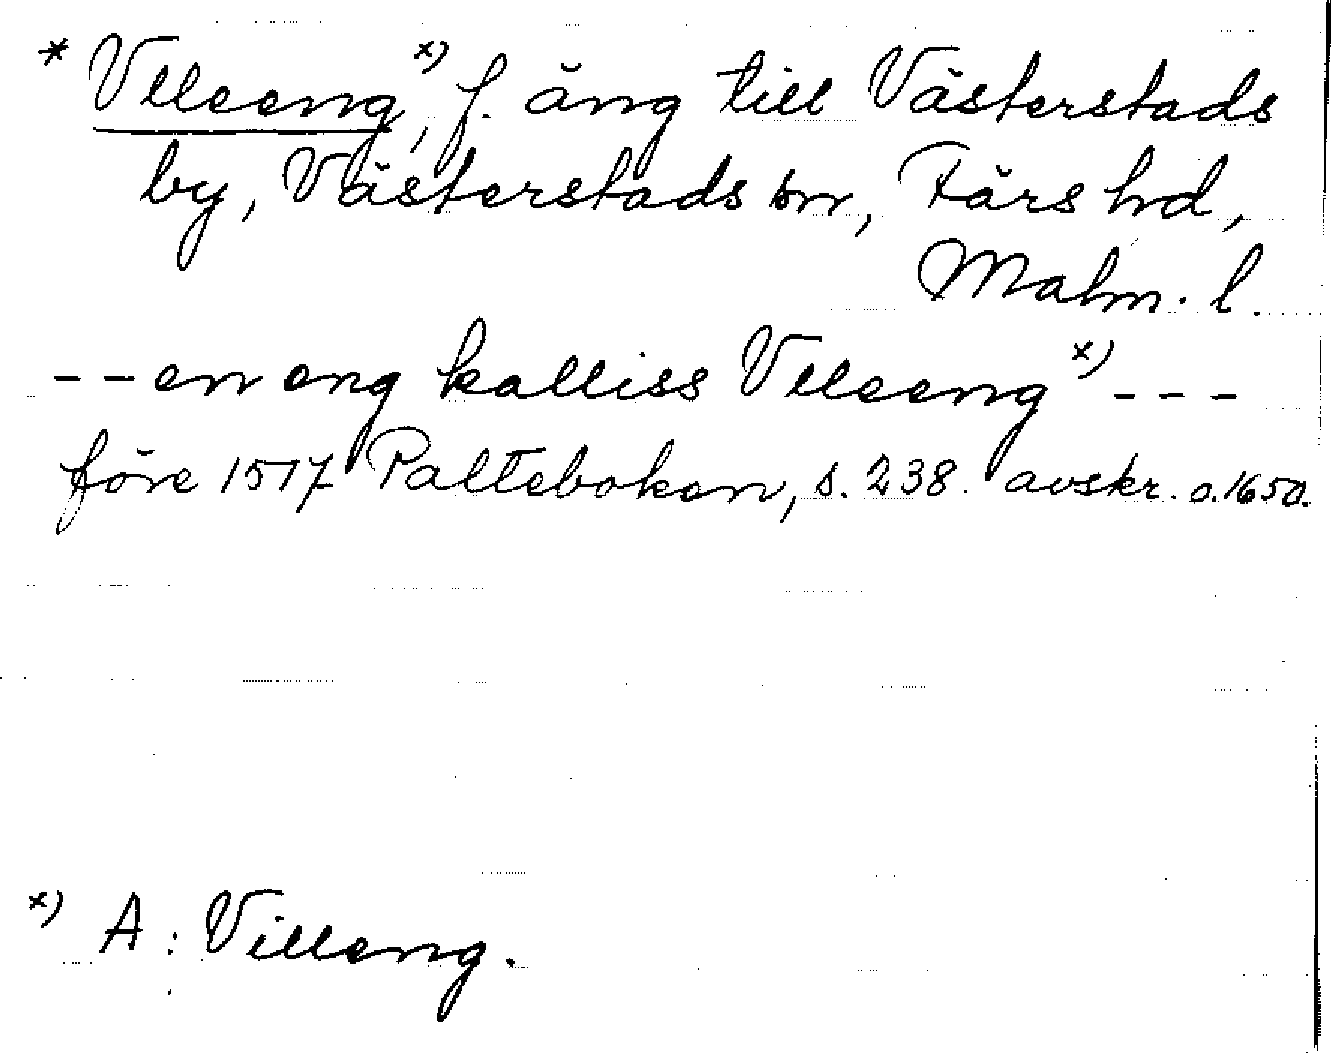 * Vlleeng,x) f. äng till Västerstads
by, Västerstads sn, Färs hd,
Malm. l.
-- en eng kalliss Vlleeng x) ---
före 1517 Palteboken, s. 238. avskr. o. 1650.
x) A: Villeng.